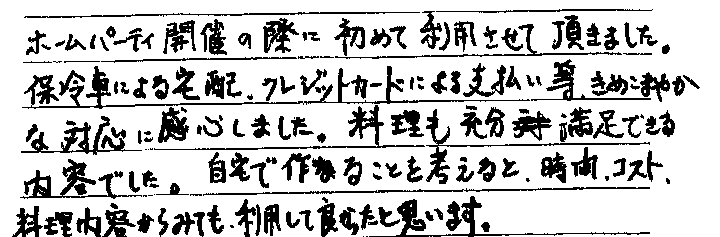 ホームパーティ開催の際に初めて利用させて頂きました。
保冷車による宅配、クレジットカードによる支払い等、きめこまやか
な対応に感心しました。料理も充分満足できる
内容でした。自宅で作ることを考えると、時間、コスト、
料理内容からみても、利用して良かったと思います。